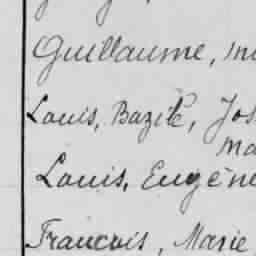 Guillaume,
Louis, Bazile, Jos
ma
Louis, Eugène
Francois, Marie